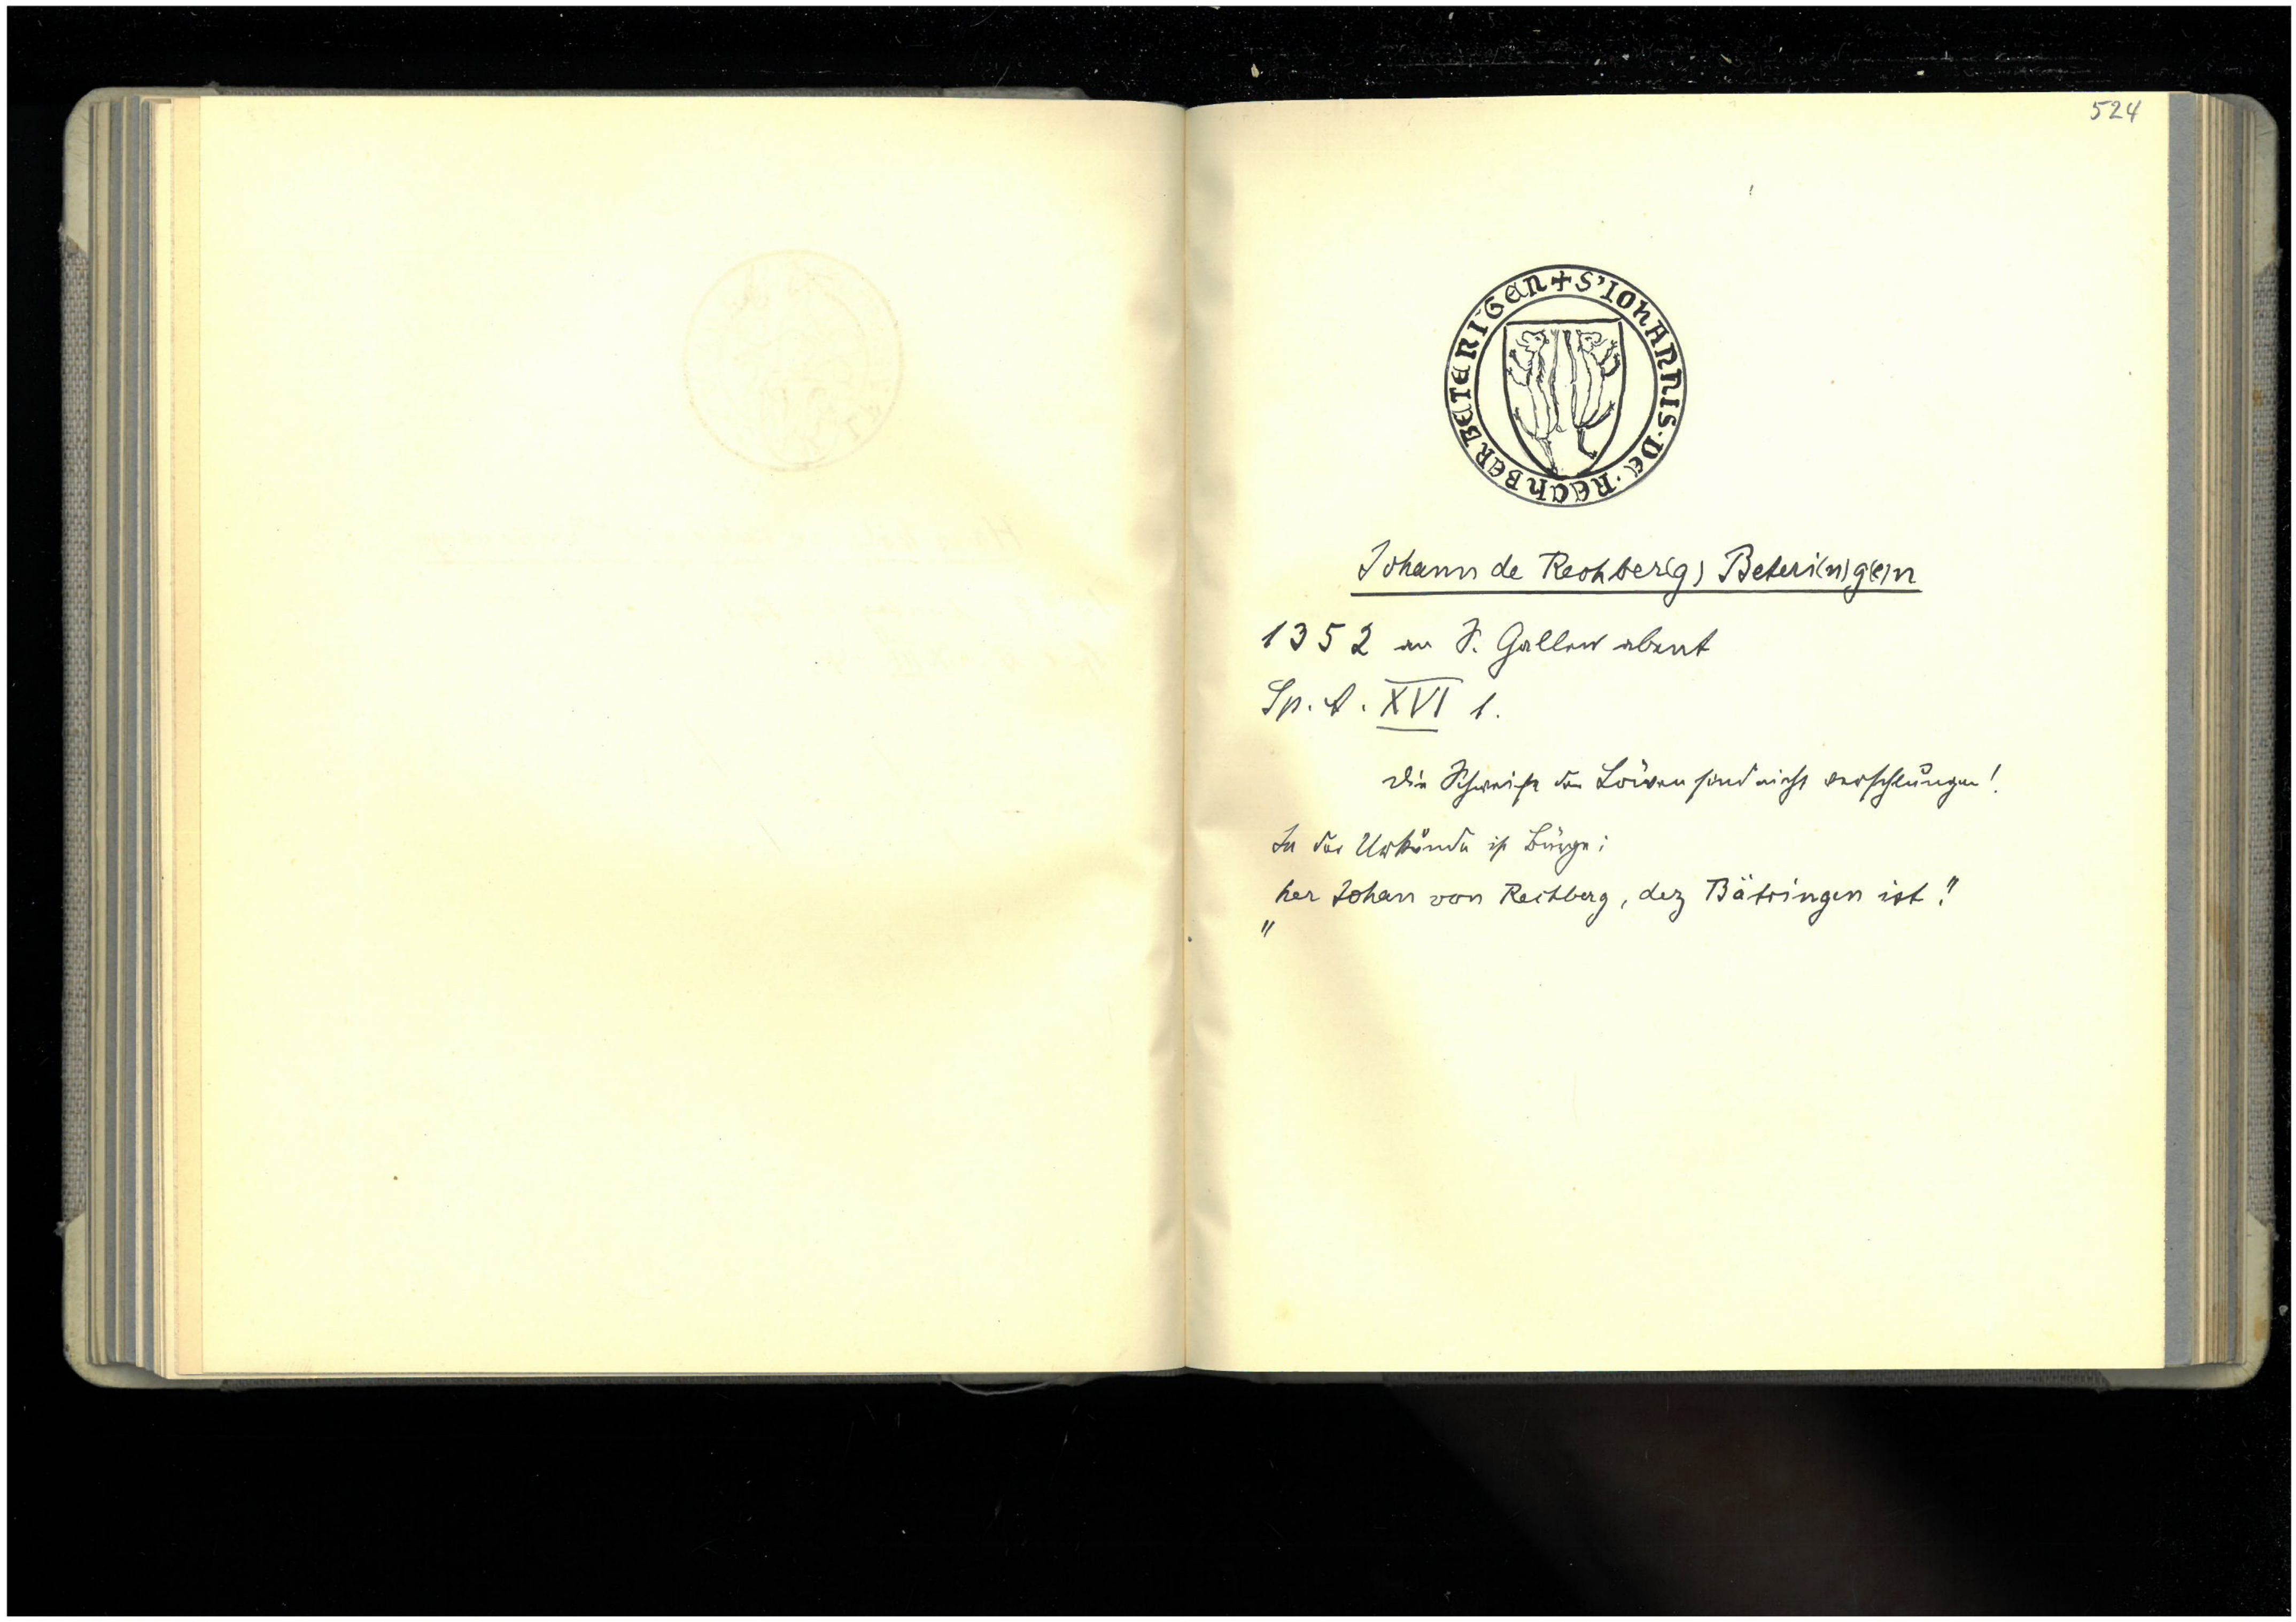 524
+ S' IOHANNIS · DE · RECHBERBETERIGEN
Johann de Rechber(g) Beteri(n)g(e)n
1352 an S. Gallen abent
Sp. A. XVI 1.
Die Schweife der Löwen sind nicht verschlungen!
In der Urkunde ist Bürge:
"her Johan von Rechberg, dez Bätringen ist."